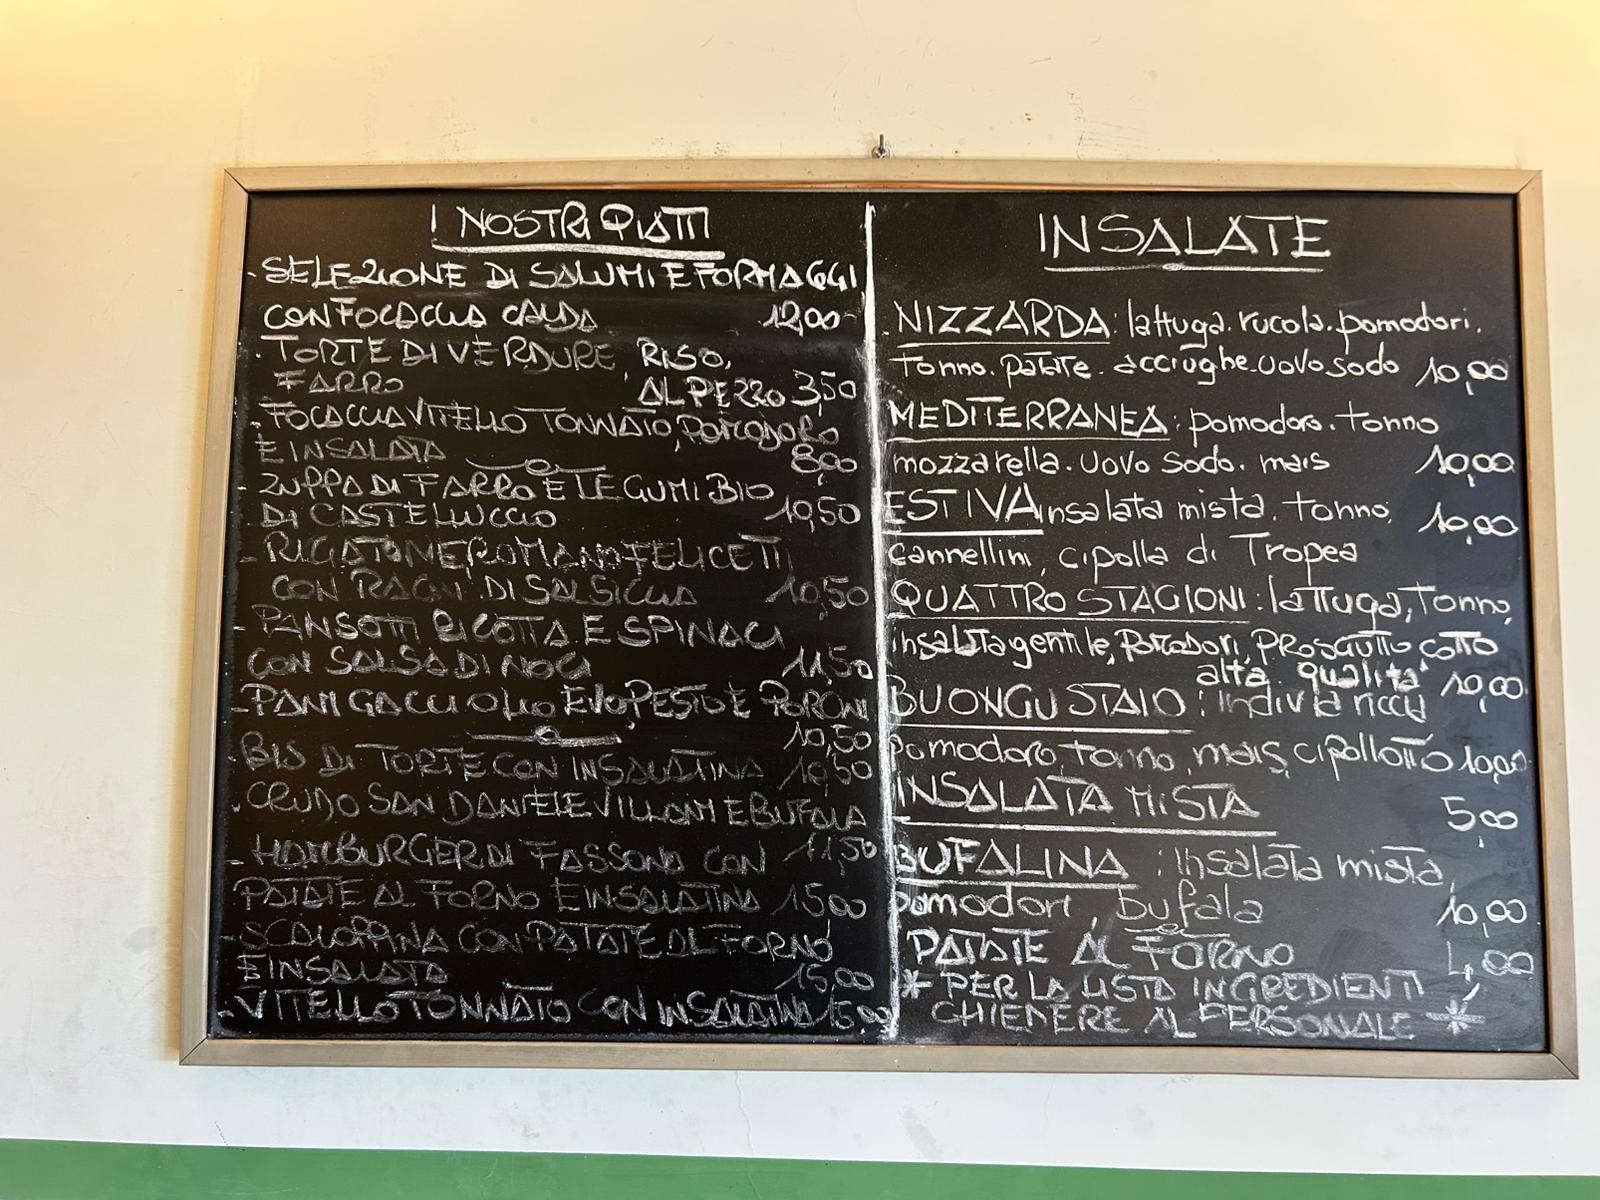 I NOSTRI PIATTI
- SELEZIONE DI SALUMI E FORMAGGI
CON FOCACCIA CALDA 12,00
- TORTE DI VERDURE, RISO,
FARRO AL PEZZO 3,50
- FOCACCIA VITELLO TONNATO, POMODORO
E INSALATA 8,00
- ZUPPA DI FARRO E LEGUMI BIO
DI CASTELLUCCIO 10,50
- RIGATONE, ROMANO FELICETTI
CON RAGU DI SALSICCIA 10,50
- PANSOTTI RICOTTA E SPINACI
CON SALSA DI NOCI 11,50
- PANIGACCI OLIO EVO, PESTO E
10,50
- BIS DI TORTE CON INSALATINA 10,50
- CRUDO SAN DANIELE VILLANI E BUFALA
11,50
- HAMBURGER DI FASSONA CON
PATATE AL FORNO E INSALATINA 15,00
- SCALOPPINA CON PATATE AL FORNO
E INSALATA 15,00
- VITELLO TONNATO CON INSALATINA 15,00
INSALATE
NIZZARDA: lattuga. rucola. pomodori.
Tonno. patate. acciughe. uovo sodo 10,00
MEDITERRANEA: pomodoro. tonno
mozzarella. uovo sodo. mais 10,00
ESTIVA insalata mista. tonno, 10,00
cannellini, cipolla di Tropea
QUATTRO STAGIONI: lattuga, Tonno,
insalata gentile, pomodori, prosciutto cotto
alta qualita' 10,00
BUONGUSTAIO: indivia riccia
pomodoro, tonno, mais, cipollotto 10,00
INSALATA MISTA 5,00
BUFALINA: Insalata mista,
pomodori, bufala 10,00
PATATE AL FORNO 4,00
* PER LA LISTA INGREDIENTI
CHIEDERE AL PERSONALE *